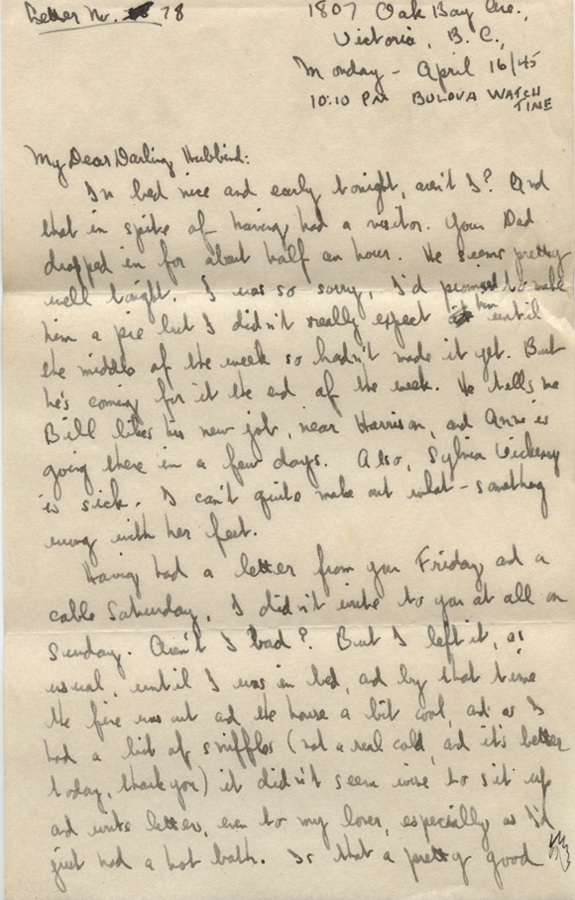 Letter No. 78
1807 Oak Bay Ave.,
Victoria, B.C.,
Monday - April 16/45
10:10 PM BULOVA WATCH
TIME
My Dear Darling Hubbind:
In bed nice and early tonight, aren't I? And
that in spite of having had a visitor. Your Dad
dropped in for about half an hour. He seems pretty
well tonight. I was so sorry, I'd promised to make
him a pie but I didn't really expect him until
the middle of the week so hadn't made it yet. But
he's coming for it the end of the week. He tells me
Bill likes his new job, near Harrison, and Anne is
going there in a few days. Also, Sylvia Vickery
is sick. I can't quite make out what - something
wrong with her feet.
Having had a letter from you Friday and a
cable Saturday, I didn't write to you at all on
Sunday. Aren't I bad? But I left it, as
usual, until I was in bed, and by that time
the fire was out and the house a bit cool, and as I
had a bit of sniffles (not a real cold, and it's better
today, thank you) it didn't seem wise to sit up
and write letters, even to my lover, especially as I'd
just had a hot bath. Is that a pretty good